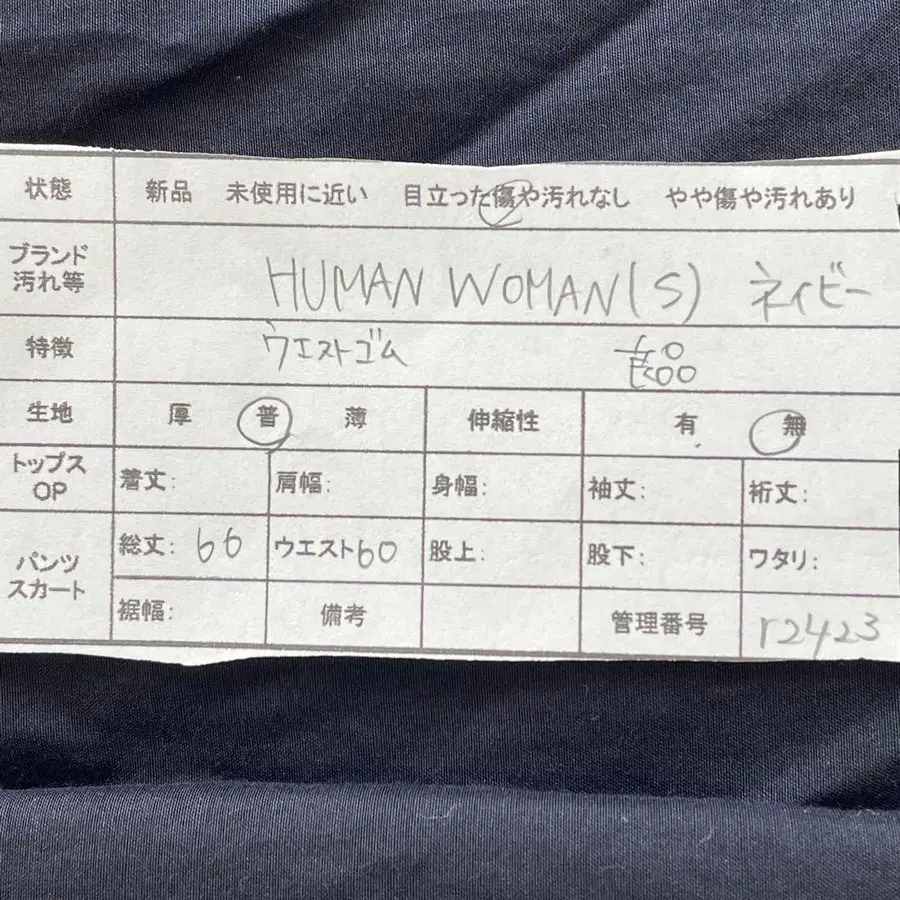 状態 新品 未使用に近い 目立った傷や汚れなし やや傷や汚れあり
ブランド
汚れ等 HUMAN WOMAN(S) ネイビー
特徴 ウエストゴム 良品
生地 厚 普 薄 伸縮性 有 無
トップス
OP 着丈: 肩幅: 身幅: 袖丈: 裄丈:
パンツ
スカート 総丈: 66 ウエスト60 股上: 股下: ワタリ:
裾幅: 備考 管理番号 r2423